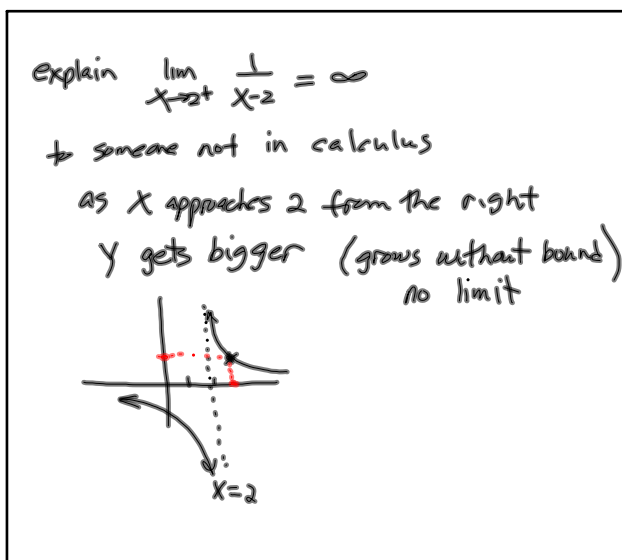 explain lim 1/(x-2) = ∞
x→2⁺
to someone not in calculus
as x approaches 2 from the right
y gets bigger (grows without bound)
no limit
x=2